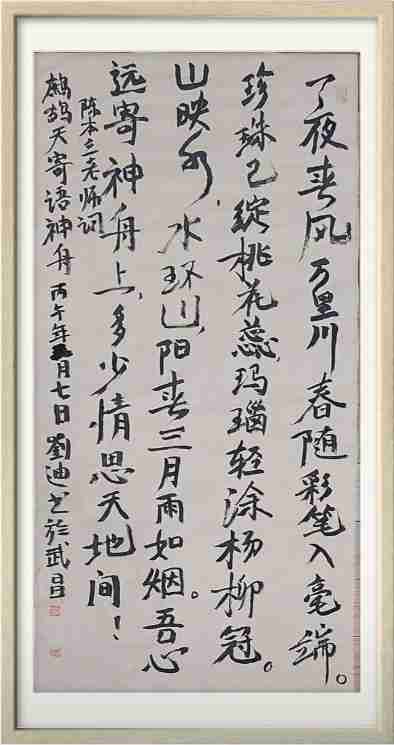 夜春风万里川春随彩笔入毫端。
珍珠已绽桃花蕊，玛瑙轻涂杨柳冠。
山映水，水环山，阳春三月雨如烟。吾心
远寄神舟上，多少情思天地间！
陈本立老师词
鹧鸪天寄语神舟 丙午年月七日劉迪书於武昌